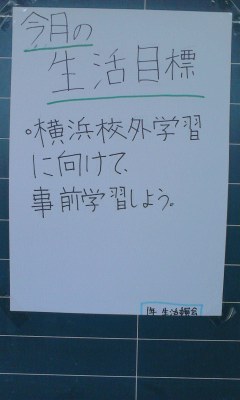 今月の
生活目標
。横浜校外学習
に向けて、
事前学習しよう。